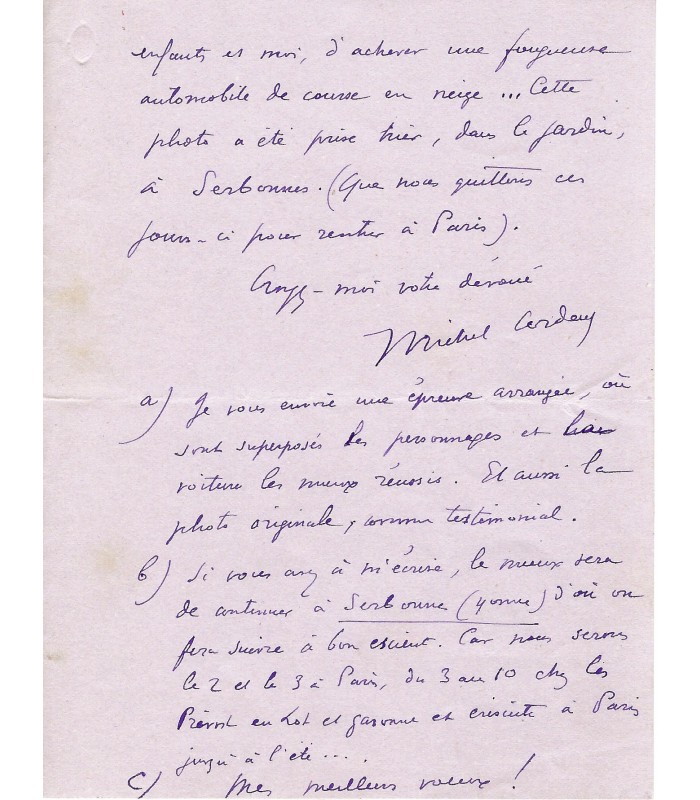 enfants et moi, d'achever une fougueuse
automobile de course en neige ... Cette
photo a été prise hier, dans le jardin,
à Serbonnes. (Que nous quittons ces
jours-ci pour rentrer à Paris).
Croyez-moi votre dévoué
Michel Corday
a) Je vous envoie une épreuve arrangée, où
sont superposés les personnages et la
voiture les mieux réussis. Et aussi la
photo originale, comme testimonial.
b) Si vous avez à m'écrire, le mieux sera
de continuer à Serbonnes (Yonne) d'où on
fera suivre à bon escient. Car nous serons
le 2 et le 3 à Paris, du 3 au 10 chez les
Prévost en Lot et Garonne et ensuite à Paris
jusqu'à l'été ....
c) Mes meilleurs voeux !